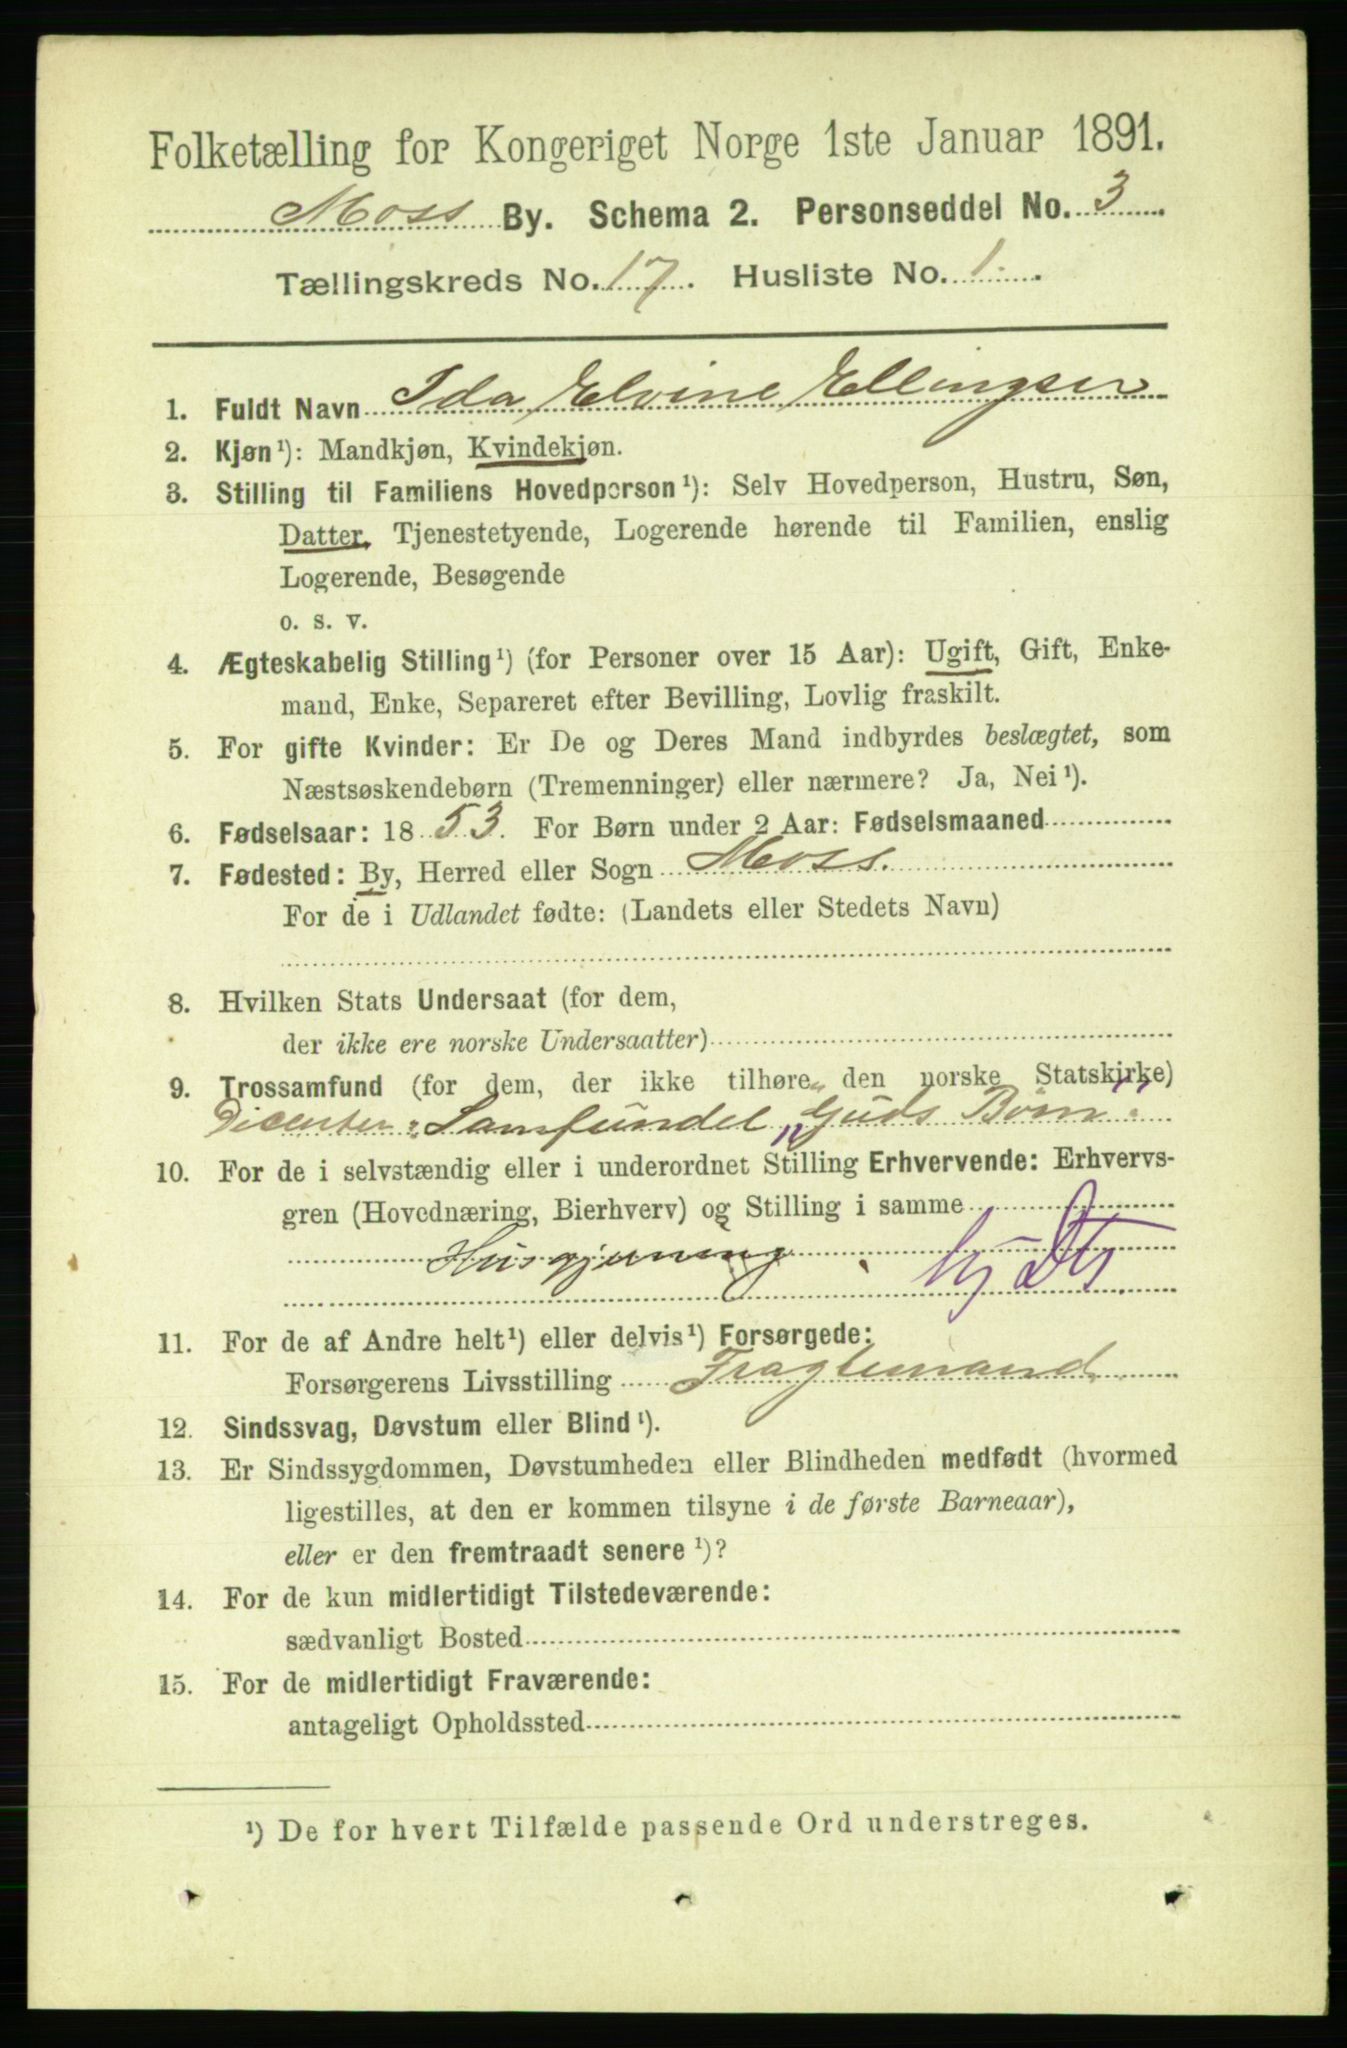 Folketælling for Kongeriget Norge 1ste Januar 1891.
Moss By. Schema 2. Personseddel No. 3
Tællingskreds No. 17. Husliste No. 1.
1. Fuldt Navn Ida Elvine Ellingsen
2. Kjøn¹): Mandkjøn, Kvindekjøn.
3. Stilling til Familiens Hovedperson¹): Selv Hovedperson, Hustru, Søn,
Datter, Tjenestetyende, Logerende hørende til Familien, enslig
Logerende, Besøgende
o. s. v.
4. Ægteskabelig Stilling¹) (for Personer over 15 Aar): Ugift, Gift, Enke-
mand, Enke, Separeret efter Bevilling, Lovlig fraskilt.
5. For gifte Kvinder: Er De og Deres Mand indbyrdes beslægtet, som
Næstsøskendebørn (Tremenninger) eller nærmere? Ja, Nei¹).
6. Fødselsaar: 1853. For Børn under 2 Aar: Fødselsmaaned
7. Fødested: By, Herred eller Sogn Moss.
For de i Udlandet fødte: (Landets eller Stedets Navn)
8. Hvilken Stats Undersaat (for dem,
der ikke ere norske Undersaatter)
9. Trossamfund (for dem, der ikke tilhøre den norske Statskirke)
Dicenter: Samfundet „Guds Børn"
10. For de i selvstændig eller i underordnet Stilling Erhvervende: Erhvervs-
gren (Hovednæring, Bierhverv) og Stilling i samme
Husgjerning
11. For de af Andre helt¹) eller delvis¹) Forsørgede:
Forsørgerens Livsstilling Fragtemand
12. Sindssvag, Døvstum eller Blind¹).
13. Er Sindssygdommen, Døvstumheden eller Blindheden medfødt (hvormed
ligestilles, at den er kommen tilsyne i de første Barneaar),
eller er den fremtraadt senere¹)?
14. For de kun midlertidigt Tilstedeværende:
sædvanligt Bosted
15. For de midlertidigt Fraværende:
antageligt Opholdssted
¹) De for hvert Tilfælde passende Ord understreges.